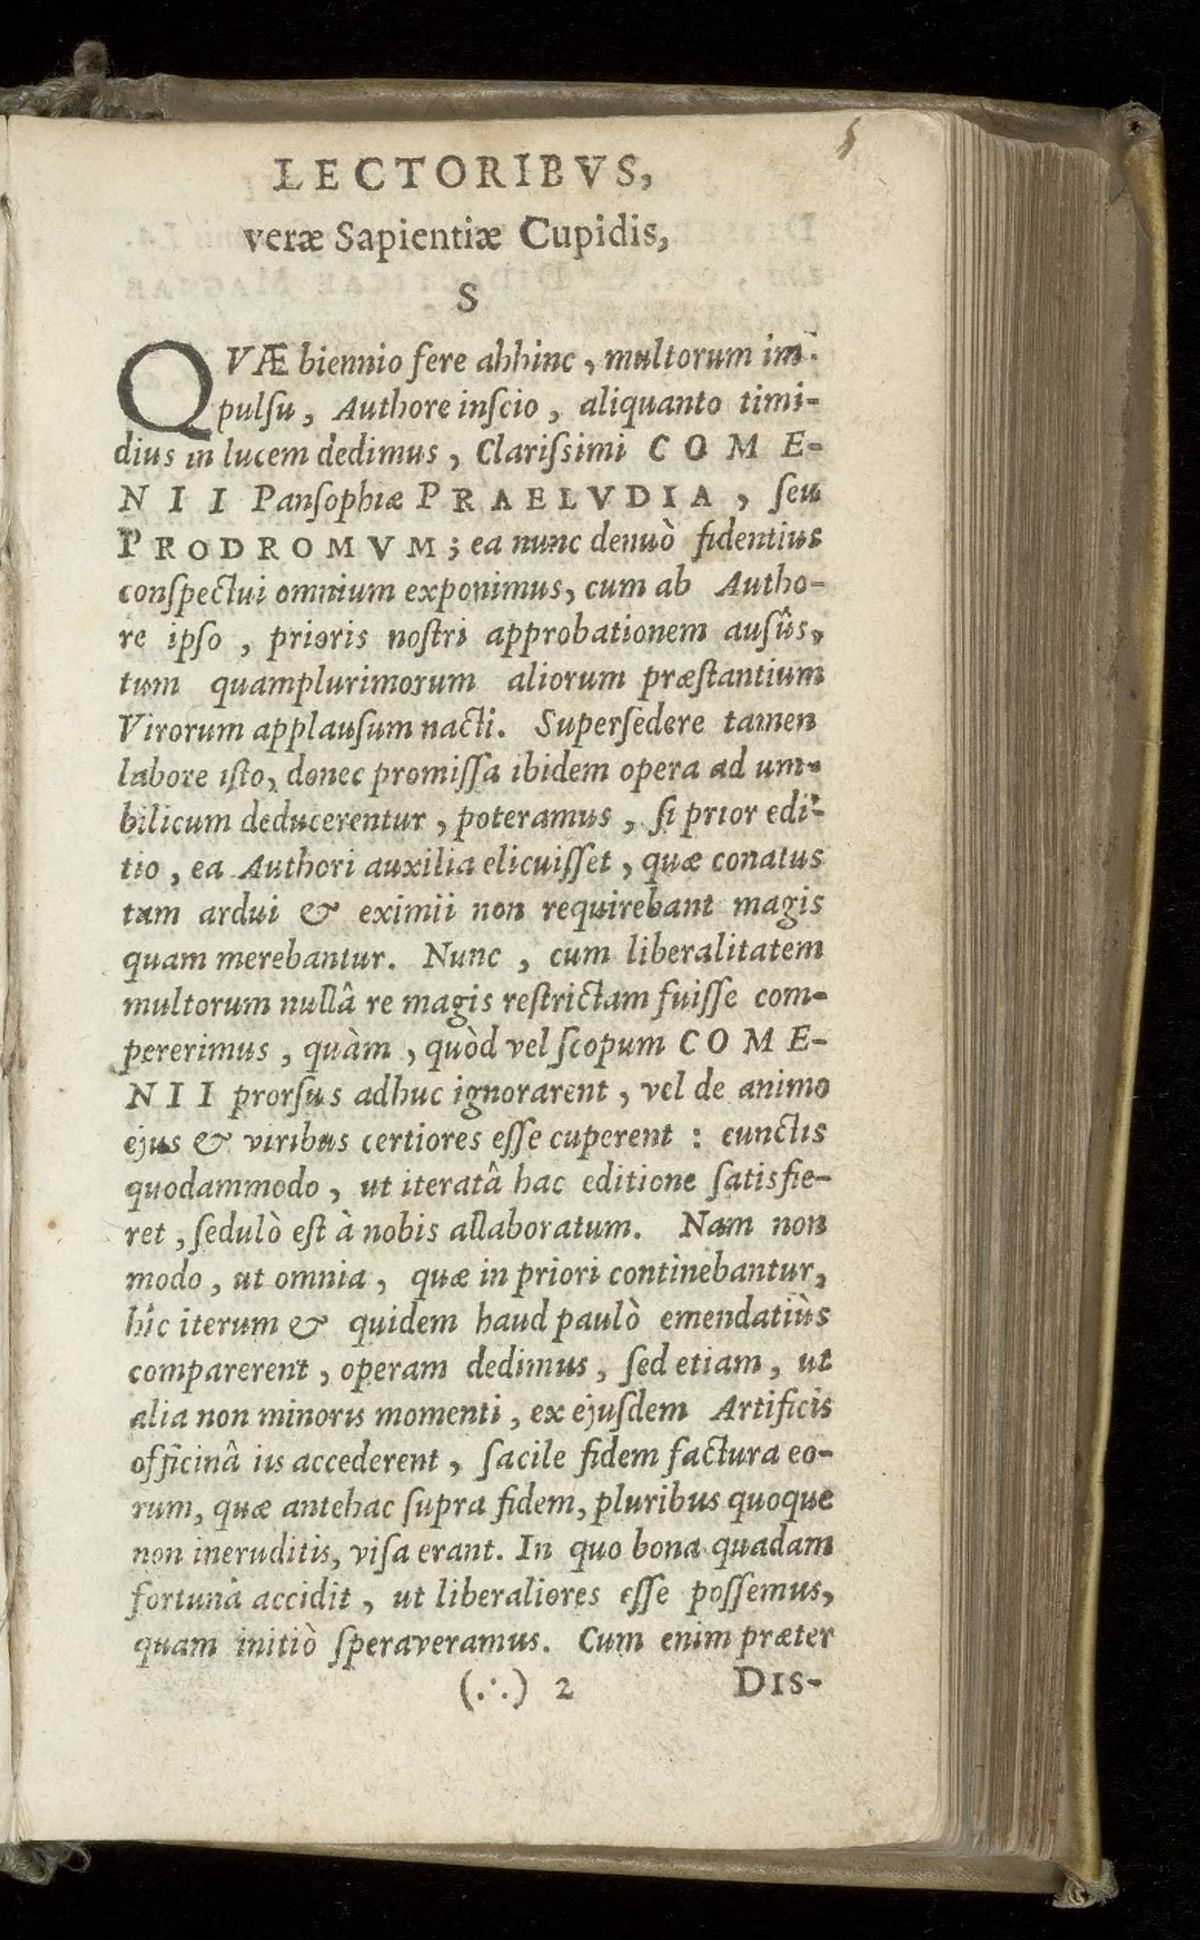 5
LECTORIBVS,
veræ Sapientiæ Cupidis,
S
QVÆ biennio fere abhinc, multorum im-
pulſu, Authore inſcio, aliquanto timi-
dius in lucem dedimus, Clariſsimi COME-
NII Panſophiæ PRAELVDIA, ſeu
PRODROMVM; ea nunc denuò fidentius
conſpectui omnium exponimus, cum ab Autho-
re ipſo, prioris noſtri approbationem auſûs,
tum quamplurimorum aliorum præſtantium
Virorum applauſum nacti. Superſedere tamen
labore iſto, donec promiſſa ibidem opera ad um-
bilicum deducerentur, poteramus, ſi prior edi-
tio, ea Authori auxilia elicuiſſet, quæ conatus
tam ardui & eximii non requirebant magis
quam merebantur. Nunc, cum liberalitatem
multorum nullâ re magis reſtrictam fuiſſe com-
pererimus, quàm, quòd vel ſcopum COME-
NII prorſus adhuc ignorarent, vel de animo
ejus & viribus certiores eſſe cuperent: cunctis
quodammodo, ut iteratâ hac editione ſatisfie-
ret, ſedulò eſt à nobis allaboratum. Nam non
modo, ut omnia, quæ in priori continebantur,
hîc iterum & quidem haud paulò emendatiùs
comparerent, operam dedimus, ſed etiam, ut
alia non minoris momenti, ex ejuſdem Artificis
officinâ iis accederent, facile fidem factura eo-
rum, quæ antehac ſupra fidem, pluribus quoque
non ineruditis, viſa erant. In quo bona quadam
fortunâ accidit, ut liberaliores eſſe poſſemus,
quam initiò ſperaveramus. Cum enim præter
(∴) 2 DIS-